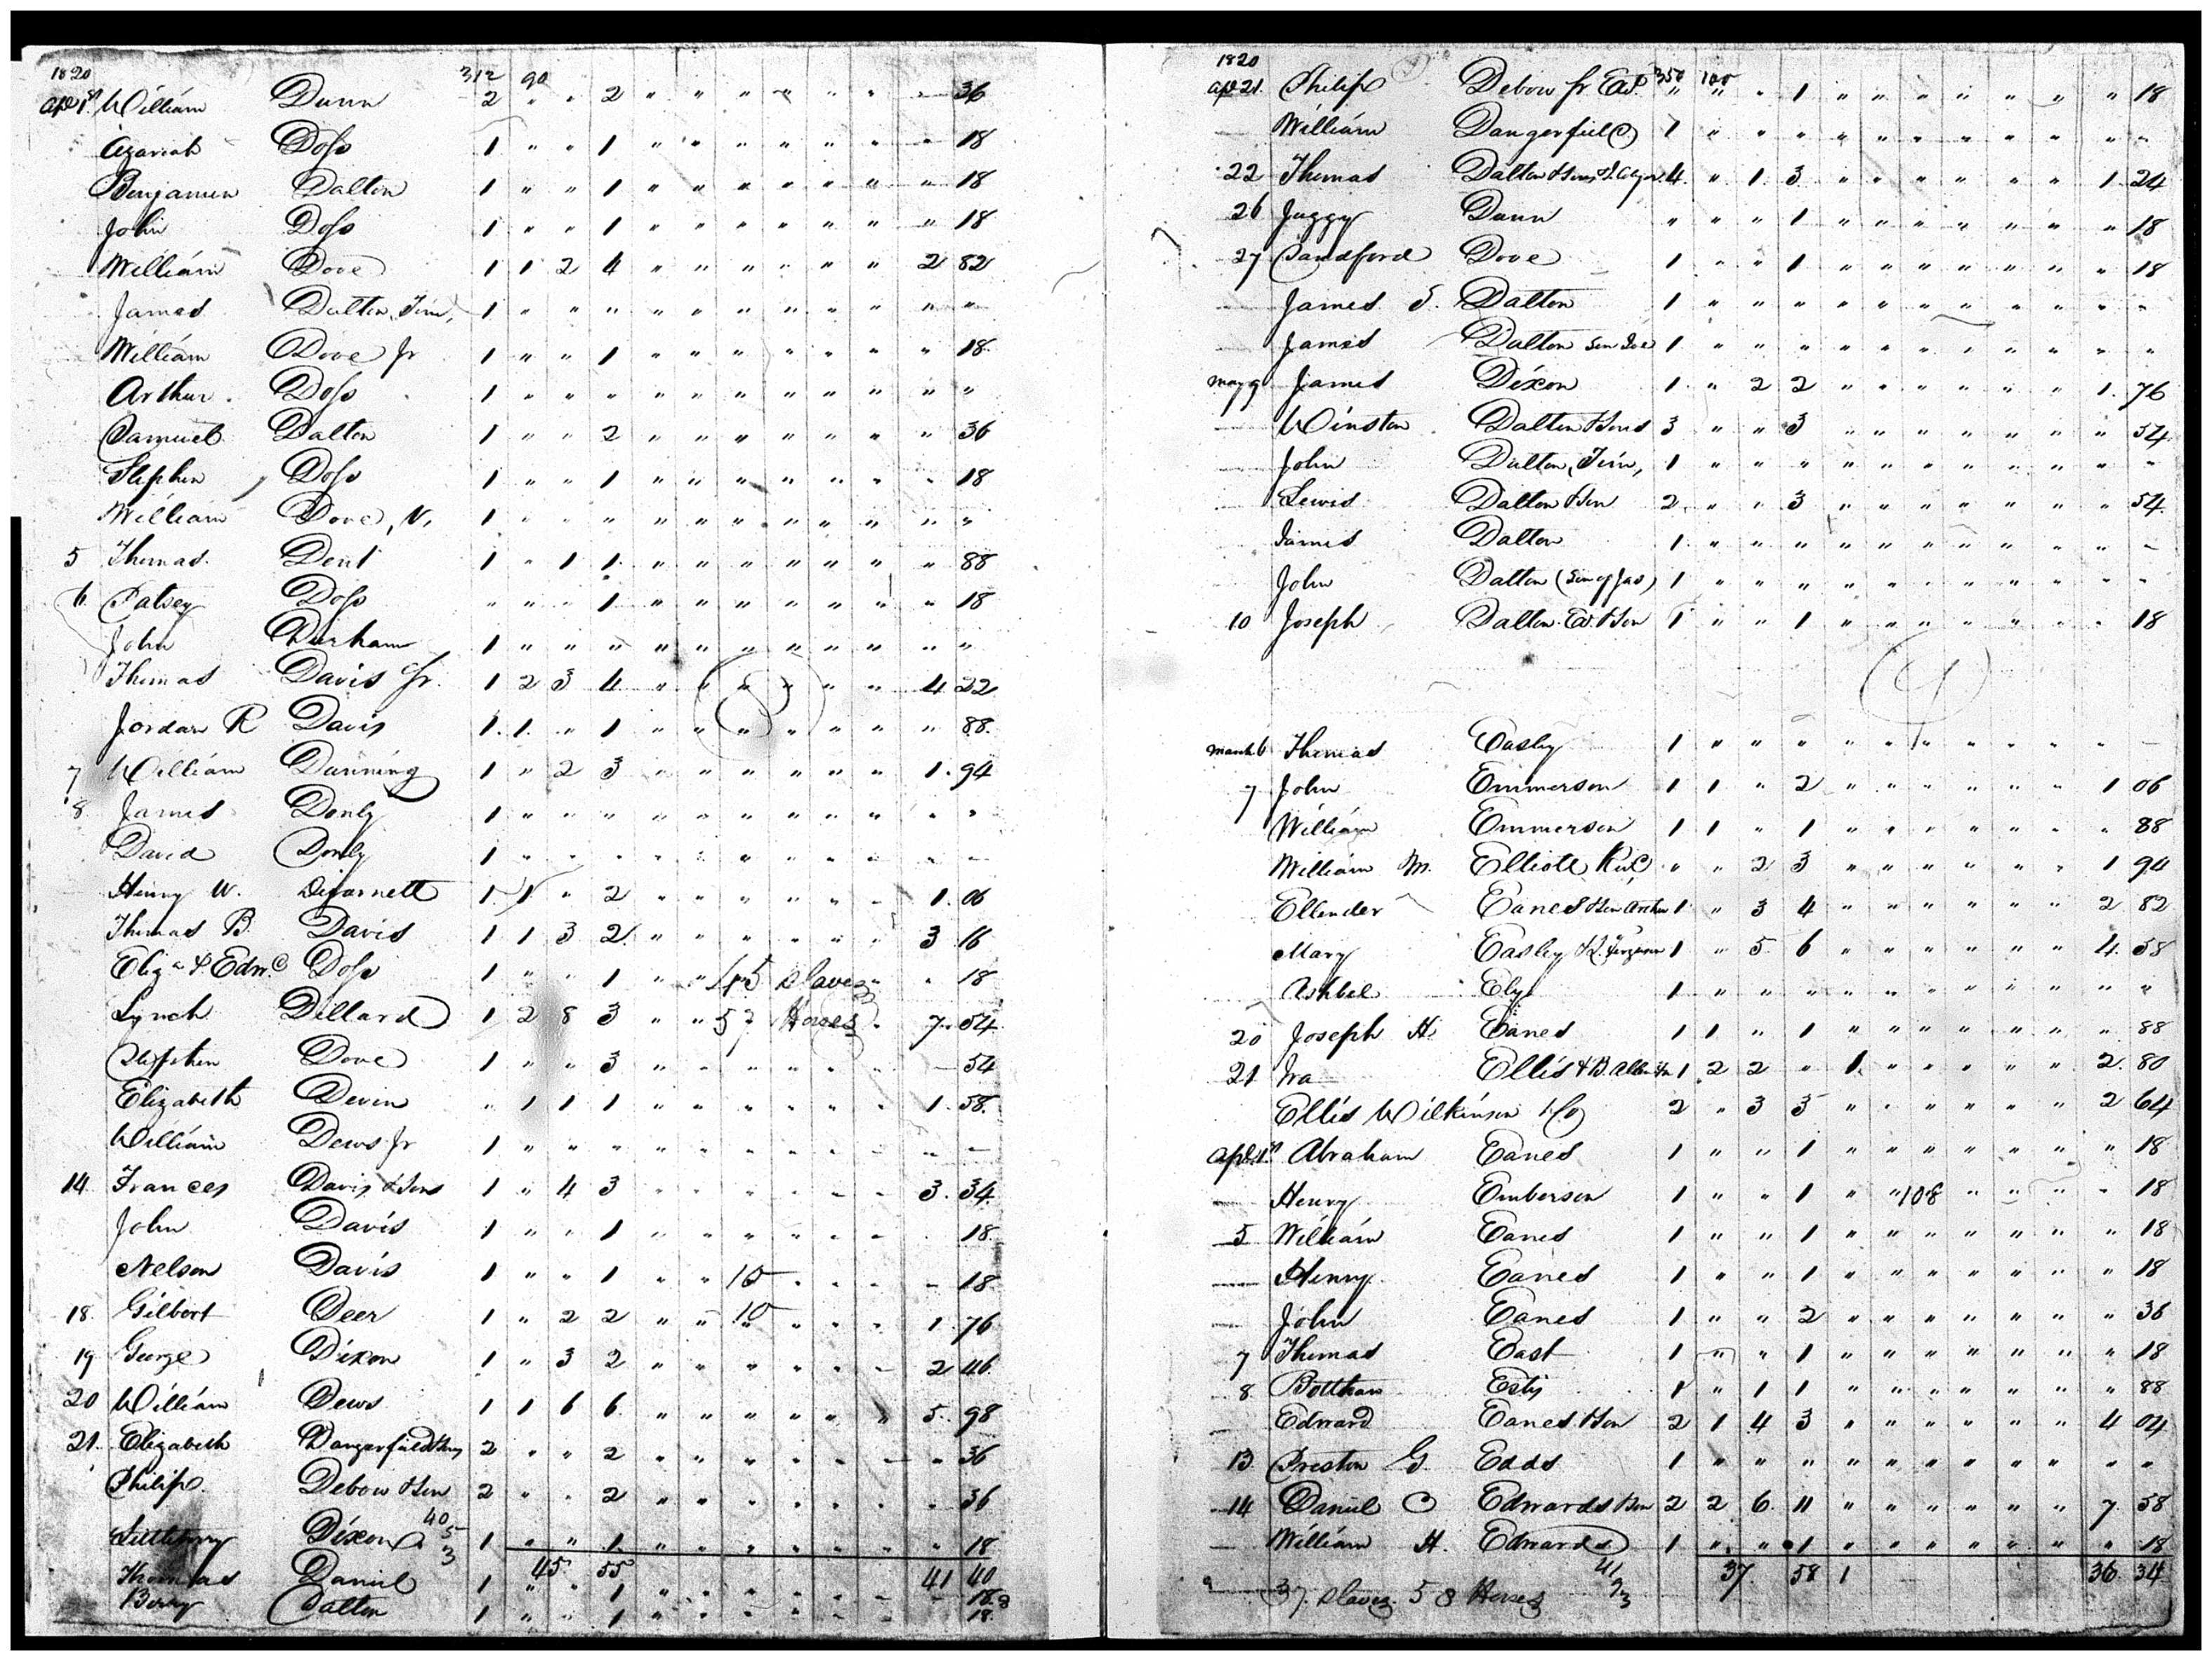 1820 312 90
Apl 1st William Dunn 2 " " 2 " " " " " " " 36
Azariah Doss 1 " " 1 " " " " " " " 18
Benjamin Dalton 1 " " 1 " " " " " " " 18
John Doss 1 " " 1 " " " " " " " 18
William Dove 1 1 2 4 " " " " " " 2 82
James Dalton, Tim, 1 " " " " " " " " " " "
William Dove Jr 1 " " 1 " " " " " " " 18
Arthur Doss 1 " " " " " " " " " " "
Samuel Dalton 1 " " 2 " " " " " " " 36
Stephen Doss 1 " " 1 " " " " " " " 18
William Dove, N, 1 " " " " " " " " " " "
5 Thomas Dent 1 " 1 1 " " " " " " " 88
6 Patsey Doss " " " 1 " " " " " " " 18
John Durham 1 " " " " " " " " " " "
Thomas Davis Sr. 1 2 3 4 " " " " " " 4 22
Jordan R Davis 1 1 " 1 " " " " " " " 88
7 William Dunning 1 " 2 3 " " " " " " 1 94
8 James Donly 1 " " " " " " " " " " "
David Donly 1 " " " " " " " " " " "
Henry W. Dejarnett 1 1 " 2 " " " " " " 1 06
Thomas B. Davis 1 1 3 2 " " " " " " 3 16
Eliza & Edwd Doss 1 " " 1 " " 45 Slaves " " 18
Lynch Dillard 1 2 8 3 " " 57 Horses " 7 54
Stephen Dove 1 " " 3 " " " " " " " 54
Elizabeth Devin " 1 1 1 " " " " " " 1 58
William Dews Jr 1 " " " " " " " " " " "
14 Frances Davis & Sons 1 " 4 3 " " " " " " 3 34
John Davis 1 " " 1 " " " " " " " 18
Nelson Davis 1 " " 1 " " 10 " " " " 18
18 Gilbert Deer 1 " 2 2 " " 10 " " " 1 76
19 George Dixon 1 " 3 2 " " " " " " 2 46
20 William Dews 1 1 6 6 " " " " " " 5 98
21 Elizabeth Dangerfield 2 " " 2 " " " " " " " 36
Philip Debow & Son 2 " " 2 " " " " " " " 36
Littleberry Dixon 40 5 3 1 " " 1 " " " " " " " 18
45 55 41 40
Thomas Daniel 1 " " 1 " " " " " " " 18
Berry Dalton 1 " " 1 " " " " " " " 18
1820 350 100
Apl 21 Philip Debow Jr Est " " " 1 " " " " " " " 18
William Dangerfield 1 " " " " " " " " " " "
22 Thomas Dalton 4 " 1 3 " " " " " " 1 24
26 Juggy Dunn " " " 1 " " " " " " " 18
27 Sandford Dove 1 " " 1 " " " " " " " 18
James S. Dalton 1 " " " " " " " " " " "
James Dalton 1 " " " " " " " " " " "
May 9 James Dixon 1 " 2 2 " " " " " " 1 76
Winston Dalton & Sons 3 " " 3 " " " " " " " 54
John Dalton, Tim, 1 " " " " " " " " " " "
Lewis Dalton & Son 2 " " 3 " " " " " " " 54
James Dalton 1 " " " " " " " " " " "
John Dalton (Son of Jas) 1 " " " " " " " " " " "
10 Joseph Dalton Est. & Son 1 " " 1 " " " " " " " 18
March 6 Thomas Easly 1 " " " " " " " " " " "
7 John Emmerson 1 1 " 2 " " " " " " 1 06
William Emmerson 1 1 " 1 " " " " " " " 88
William M. Elliott " " 2 3 " " " " " " 1 94
Ellender Eanes & Son Arthur 1 " 3 4 " " " " " " 2 82
Mary Easley 1 " 5 6 " " " " " " 4 58
Ashbel Ely 1 " " " " " " " " " " "
20 Joseph H. Eanes 1 1 " 1 " " " " " " " 88
21 Ira Ellis 1 2 2 " 1 " " " " " 2 80
Ellis Wilkinson & Co 2 " 3 3 " " " " " " 2 64
Apl 1st Abraham Eanes 1 " " 1 " " " " " " " 18
Henry Emberson 1 " " 1 " " 108 " " " " 18
5 William Eanes 1 " " 1 " " " " " " " 18
Henry Eanes 1 " " 1 " " " " " " " 18
John Eanes 1 " " 2 " " " " " " " 36
7 Thomas East 1 " " 1 " " " " " " " 18
8 Esty 1 " 1 1 " " " " " " " 88
Edward Eanes & Son 2 1 4 3 " " " " " " 4 04
13 Preston G. Edds 1 " " " " " " " " " " "
14 Daniel C Edwards & Son 2 2 6 11 " " " " " " 7 58
William H. Edwards 1 " " 1 " " " " " " " 18
41 37 58 1 36 34
37 Slaves 58 Horses